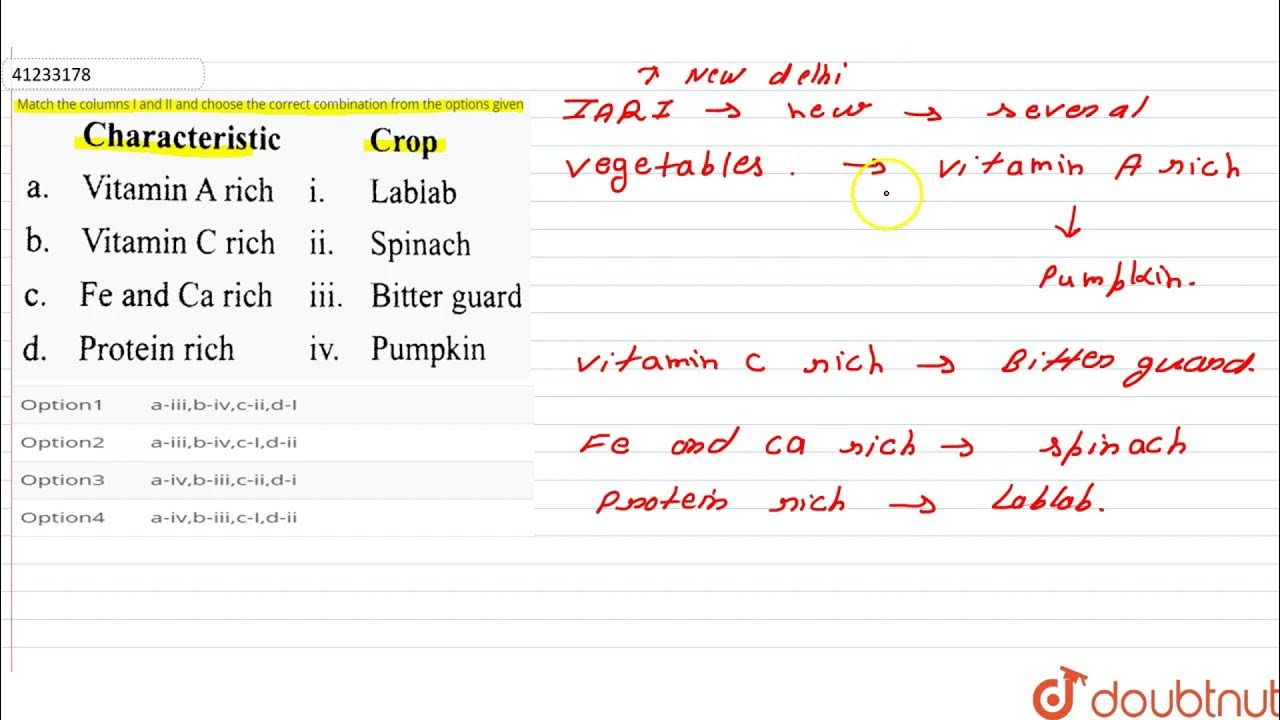 41233178
Match the columns I and II and choose the correct combination from the options given
Characteristic Crop
a. Vitamin A rich i. Lablab
b. Vitamin C rich ii. Spinach
c. Fe and Ca rich iii. Bitter guard
d. Protein rich iv. Pumpkin
Option1 a-iii,b-iv,c-ii,d-I
Option2 a-iii,b-iv,c-I,d-ii
Option3 a-iv,b-iii,c-ii,d-i
Option4 a-iv,b-iii,c-I,d-ii
↗ New delhi
IARI → new → several
vegetables. → vitamin A rich
↓
Pumpkin.
vitamin C rich → Bitter guard.
Fe and Ca rich → spinach
Protein rich → Lablab.
doubtnut